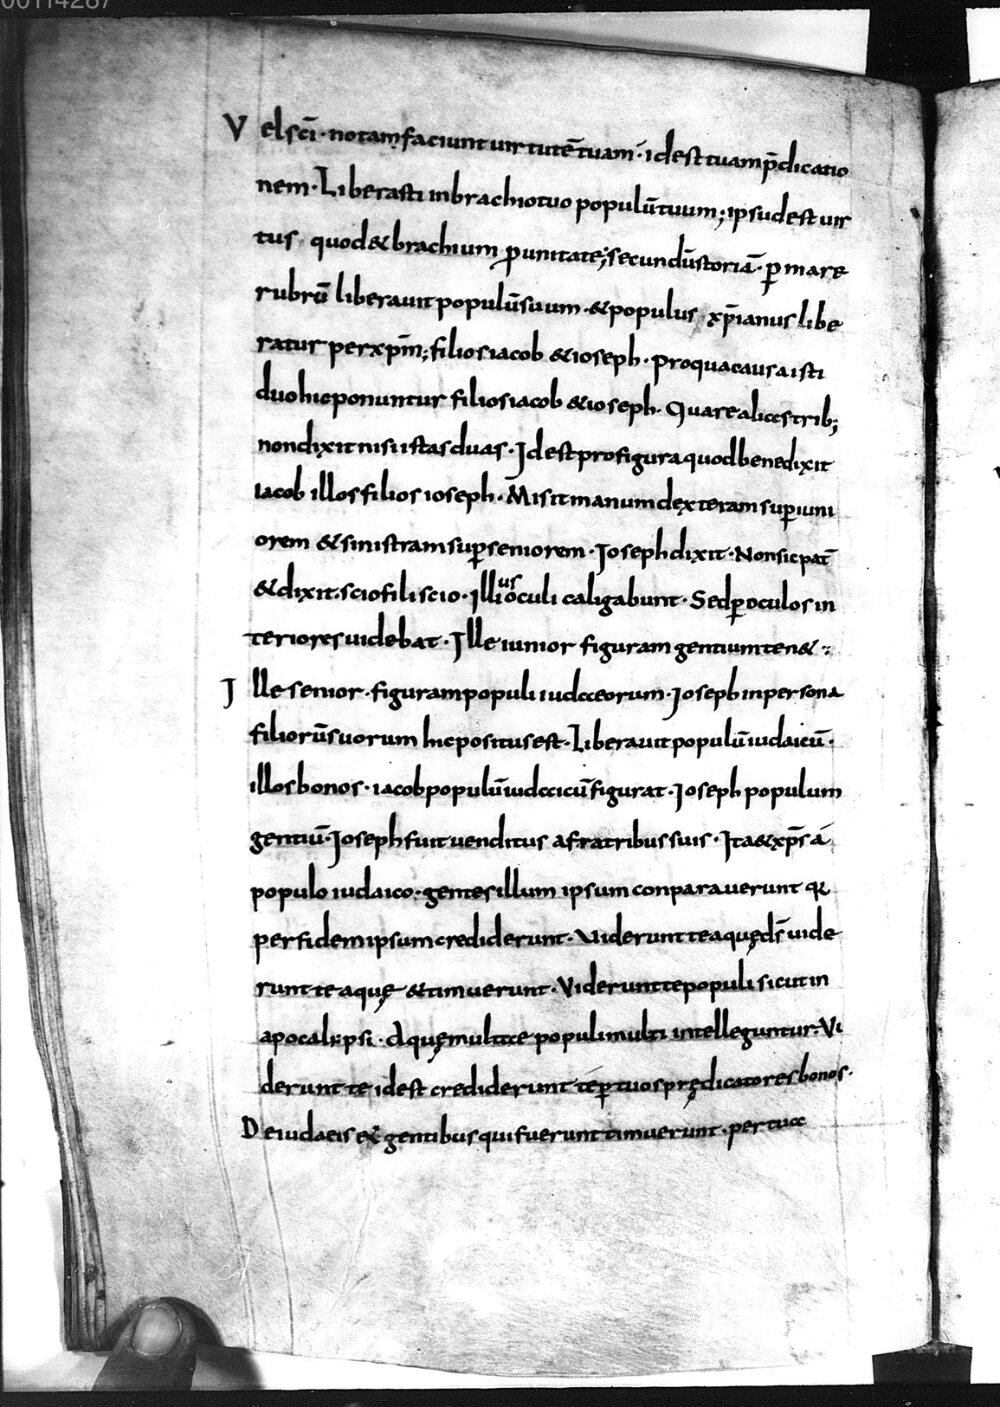 00114287
Vel sc̄i · notam faciunt uirtutē tuam · id est tuam p̄dicatio
nem · Liberasti in brachio tuo populū tuum ; ipsud est uir
tus quod & brachium ꝓ unitate ; secundū storiā · p̱ mare
rubrū liberauit populū suum · & populus xp̄ianus libe
ratur per xp̄m ; filios iacob & ioseph · pro qua causa isti
duo hic ponuntur filios iacob & ioseph · Quare alias trib;
non dixit nisi istas duas · Id est pro figura quod benedixit
iacob illos filios ioseph · Misit manum dexteram sup̱ iuni
orem & sinistram sup̱ seniorem · Ioseph dixit · Non sic pat̄
& dixit · scio fili scio · Illius oculi caligabunt · Sed p̱ oculos in
teriores uidebat · Ille iunior figuram gentium ten& :
Ille senior · figuram populi iudaeorum · Ioseph in persona
filiorū suorum hic positus est · Liberauit populū iudaicū ·
illos bonos · iacob populū iudaicū figurat · Ioseph populum
gentiū · Ioseph fuit uenditus a fratribus suis · Ita & xp̄s á
populo iudaico · gentes illum ipsum conparauerunt q̄
per fidem ipsum crediderunt · Uiderunt te aquę d̄s uide
runt te aquę & timuerunt · Viderunt te populi sicut in
apocalipsi · aquę multae populi multi intelleguntur · Vi
derunt te id est crediderunt te p̱ tuos prędicatores bonos ·
De iudaeis & gentibus qui fuerunt timuerunt · per tuae